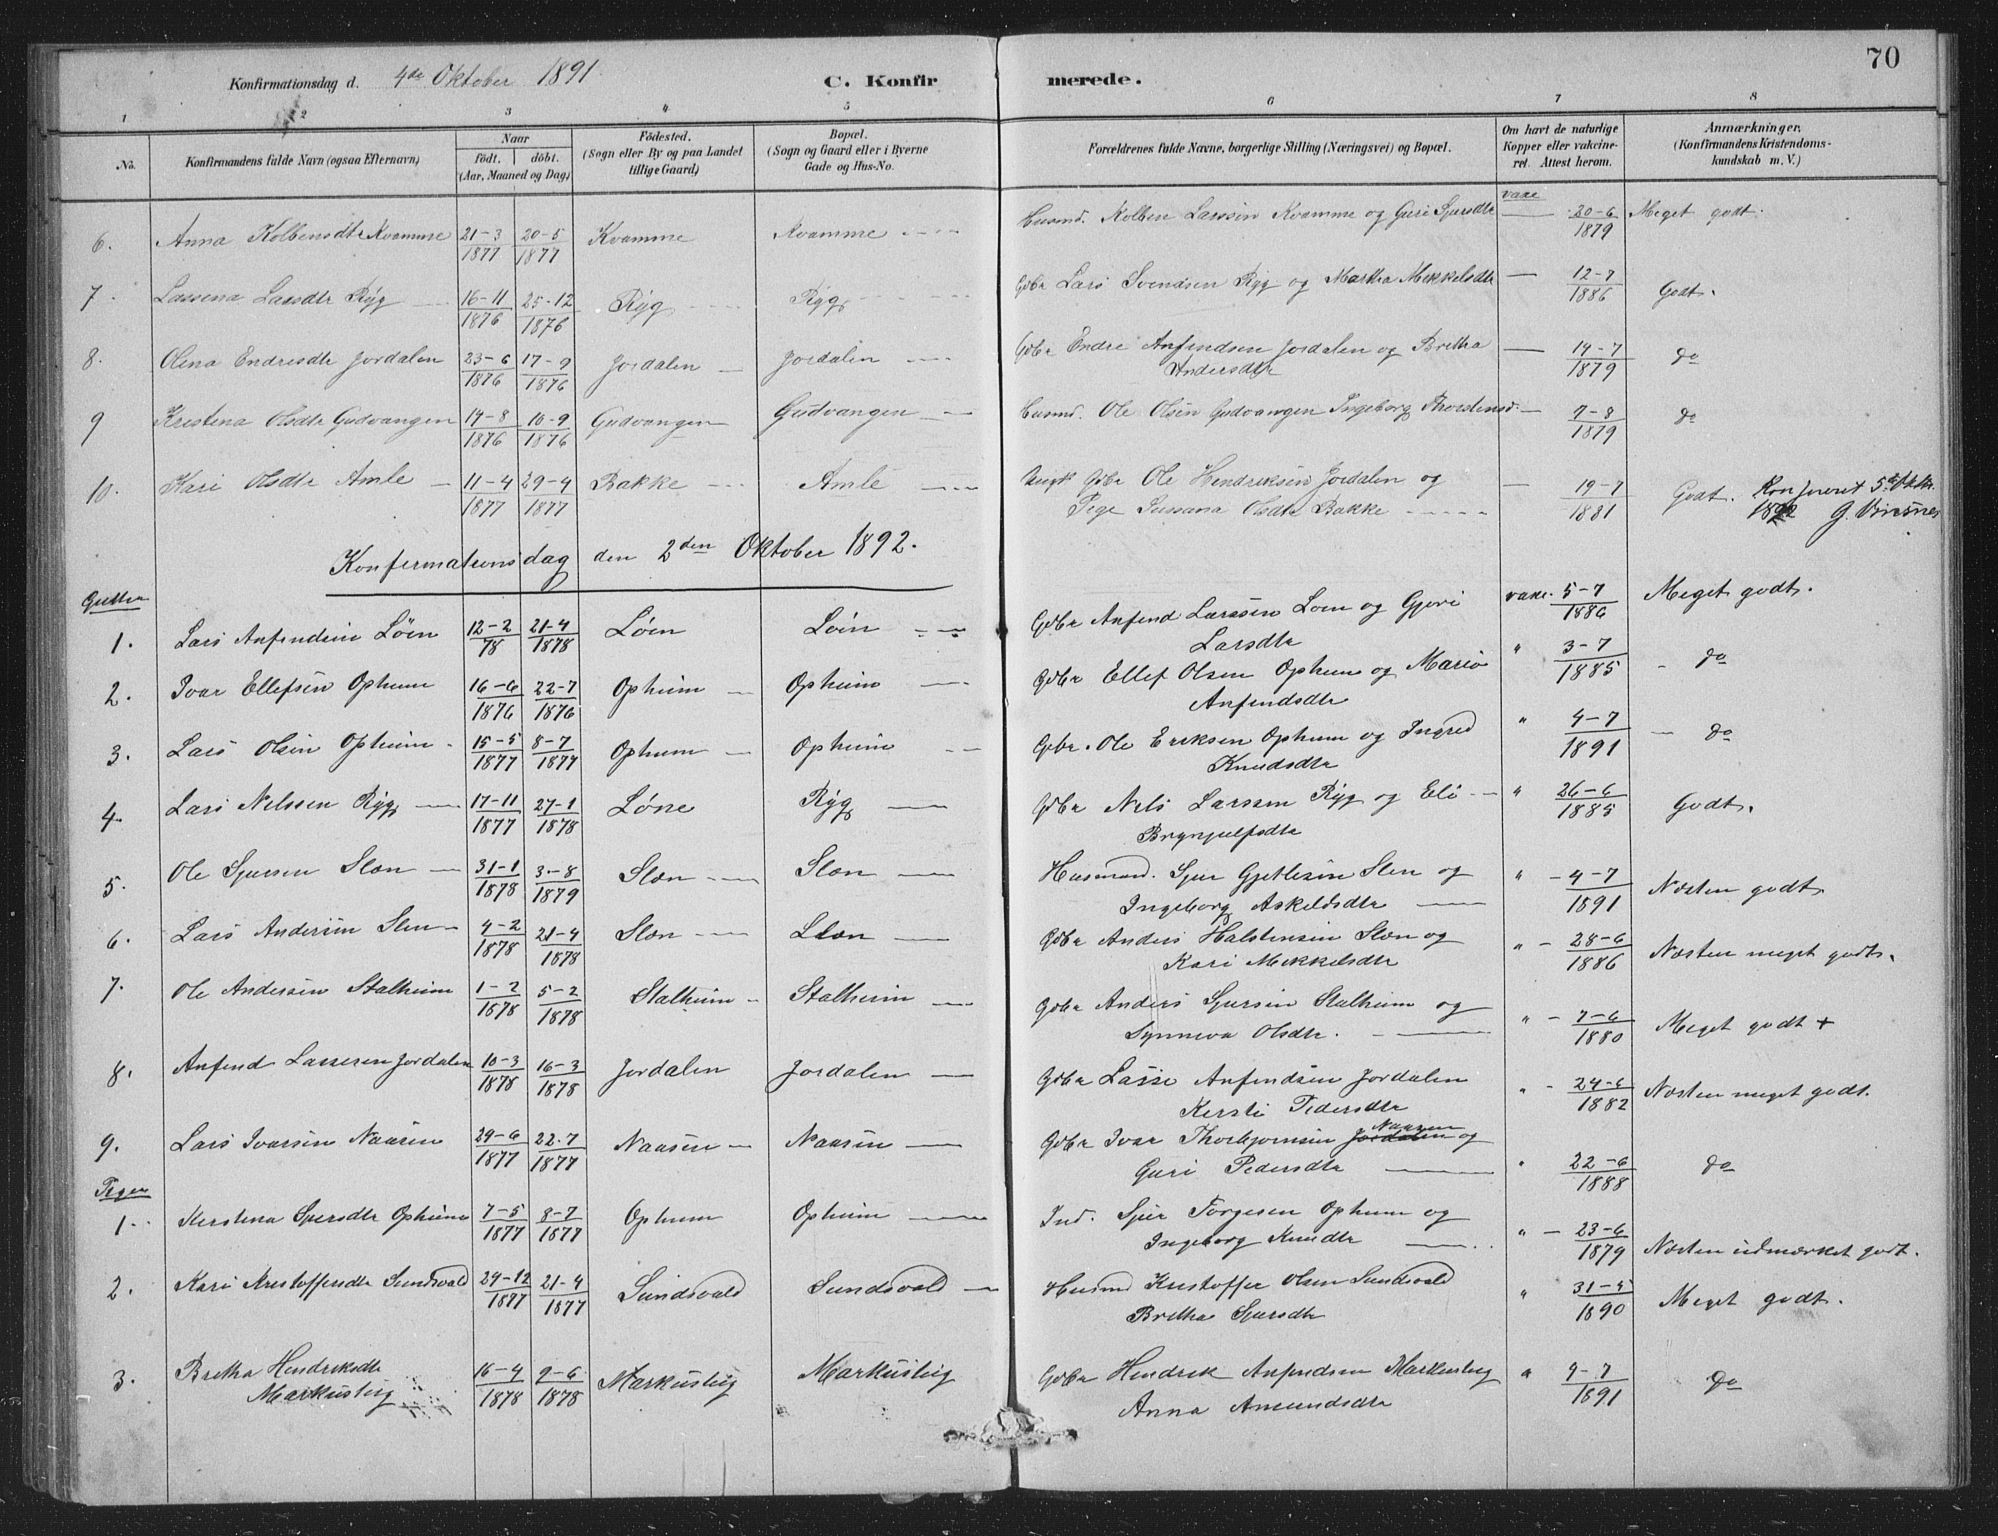 70
Konfirmationsdag d. 4de Oktober 1891. C. Konfirmerede.
1 2 3 4 5 6 7 8
No. Konfirmandens fulde Navn (ogsaa Efternavn) Naar født. døbt. (Aar, Maaned og Dag) Fødested. (Sogn eller By og paa Landet tillige Gaard) Bopæl. (Sogn og Gaard eller i Byerne Gade og Hus-No. Forældrenes fulde Navne, borgerlige Stilling (Næringsvei) og Bopæl. Om havt de naturlige Kopper eller vakcineret. Attest herom. Anmærkninger. (Konfirmandens Kristendomskundskab m. V.)
6. Anna Kolbensdtr Kvamme 21-3 1877 20-5 1877 Kvamme Kvamme Husmd. Kolben Larssen Kvamme og Guri Sjursdtr vaxc 20-6 1879 Meget godt.
7. Lassena Larsdtr Ryg 16-11 1876 25-12 1876 Ryg Ryg Gdbr Lars Svendsen Ryg og Martha Mikkelsdtr 12-7 1886 Godt.
8. Olena Endresdtr Jordalen 23-6 1876 17-9 1876 Jordalen Jordalen Gdbr Endre Anfendsen Jordalen og Bretha
Andersdtr 14-7 1879 do
9 Kristena Olsdtr Gudvangen 14-8 1876 10-9 1876 Gudvangen Gudvangen Husmd. Ole Olsen Gudvangen Ingeborg Thorstensd. 7-8 1879 do
10. Kari Olsdtr Amle 11-4 1877 29-4 1877 Bakke Amle Ungk Gdbr Ole Hendriksen Jordalen og
Pige Sussana Olsdtr Bakke 19-7 1881 Godt.
Konfirmationsdag den 2den Oktober 1892.
Gutter
1. Lars Anfendsen Løen 12-2 78 21-4 1878 Løen Løen Gdbr Anfend Larssen Loen og Gjøri
Larsdtr vaxc. 5-7 1886 Meget godt.
2. Ivar Ellefsen Ophum 16-6 1876 22-7 1876 Opheim Opheim Gdbr Ellef Olsen Ophum og Maria
Anfendsdtr " 3-7 1885 - do
3. Lars Olsen Opheim 15-5 1877 8-7 1877 Ophum Opheim Gdbr. Ole Eriksen Ophum og Ingred
Knudsdtr " 4-7 1891 - do
4. Lars Nelssen Ryg 17-11 1877 27-1 1878 Løne Ryg Gdbr Nels Larssen Ryg og Eli
Brynjulfsdtr " 26-6 1885 Godt.
5. Ole Sjursen Slæn 31-1 1878 3-8 1879 Slæn Slæn Husmand. Sjur Gjetlesen Slen og
Ingeborg Askeldsdtr " 4-7 1891 Næsten godt.
6. Lars Andersen Slen 4-2 1878 21-4 1878 Slæn Slæn Gdbr Anders Halstensen Slæn og
Kari Mikkelsdtr " 28-6 1886 Næsten meget godt.
7. Ole Andersen Stalheim 1-2 1878 5-2 1878 Stalheim Stalheim Gdbr Anders Sjursen Stalheim og
Synneva Olsdtr. " 7-6 1880 Meget godt +
8. Anfend Lassesen Jordalen 10-3 1878 16-3 1878 Jordalen Jordalen Gdbr Lasse Anfendsen Jordalen
Kersti Pedersdtr " 24-6 1882 Næsten meget godt.
9. Lars Ivarsen Naasen 29-6 1877 22-7 1877 Naasen Naasen Gdbr Ivar Thorbjørnsen Jordalen Naasen og
Guri Pedersdtr " 22-6 1888 do
Piger
1. Kerstena Sjursdtr Opheim 7-5 1877 8-7 1877 Ophum Opheim Ind. Sjur Torgesen Ophum og
Ingeborg Knudtr " 23-6 1879 Næsten udmærket godt.
2. Kari Kristoffersdtr Sundsvald 24-12 1877 21-4 1877 Sundsvald Sundsvald Husmd Kristoffer Olsen Sundsvald
Bretha Sjursdtr " 31-5 1890 Meget godt.
3. Bretha Hendriksdtr
Markusteig 16-4 1878 9-6 1878 Markusteig Markusteig Gdbr Hendrik Anfendsen Markusteig
Anna Amundsdtr " 9-7 1891 do